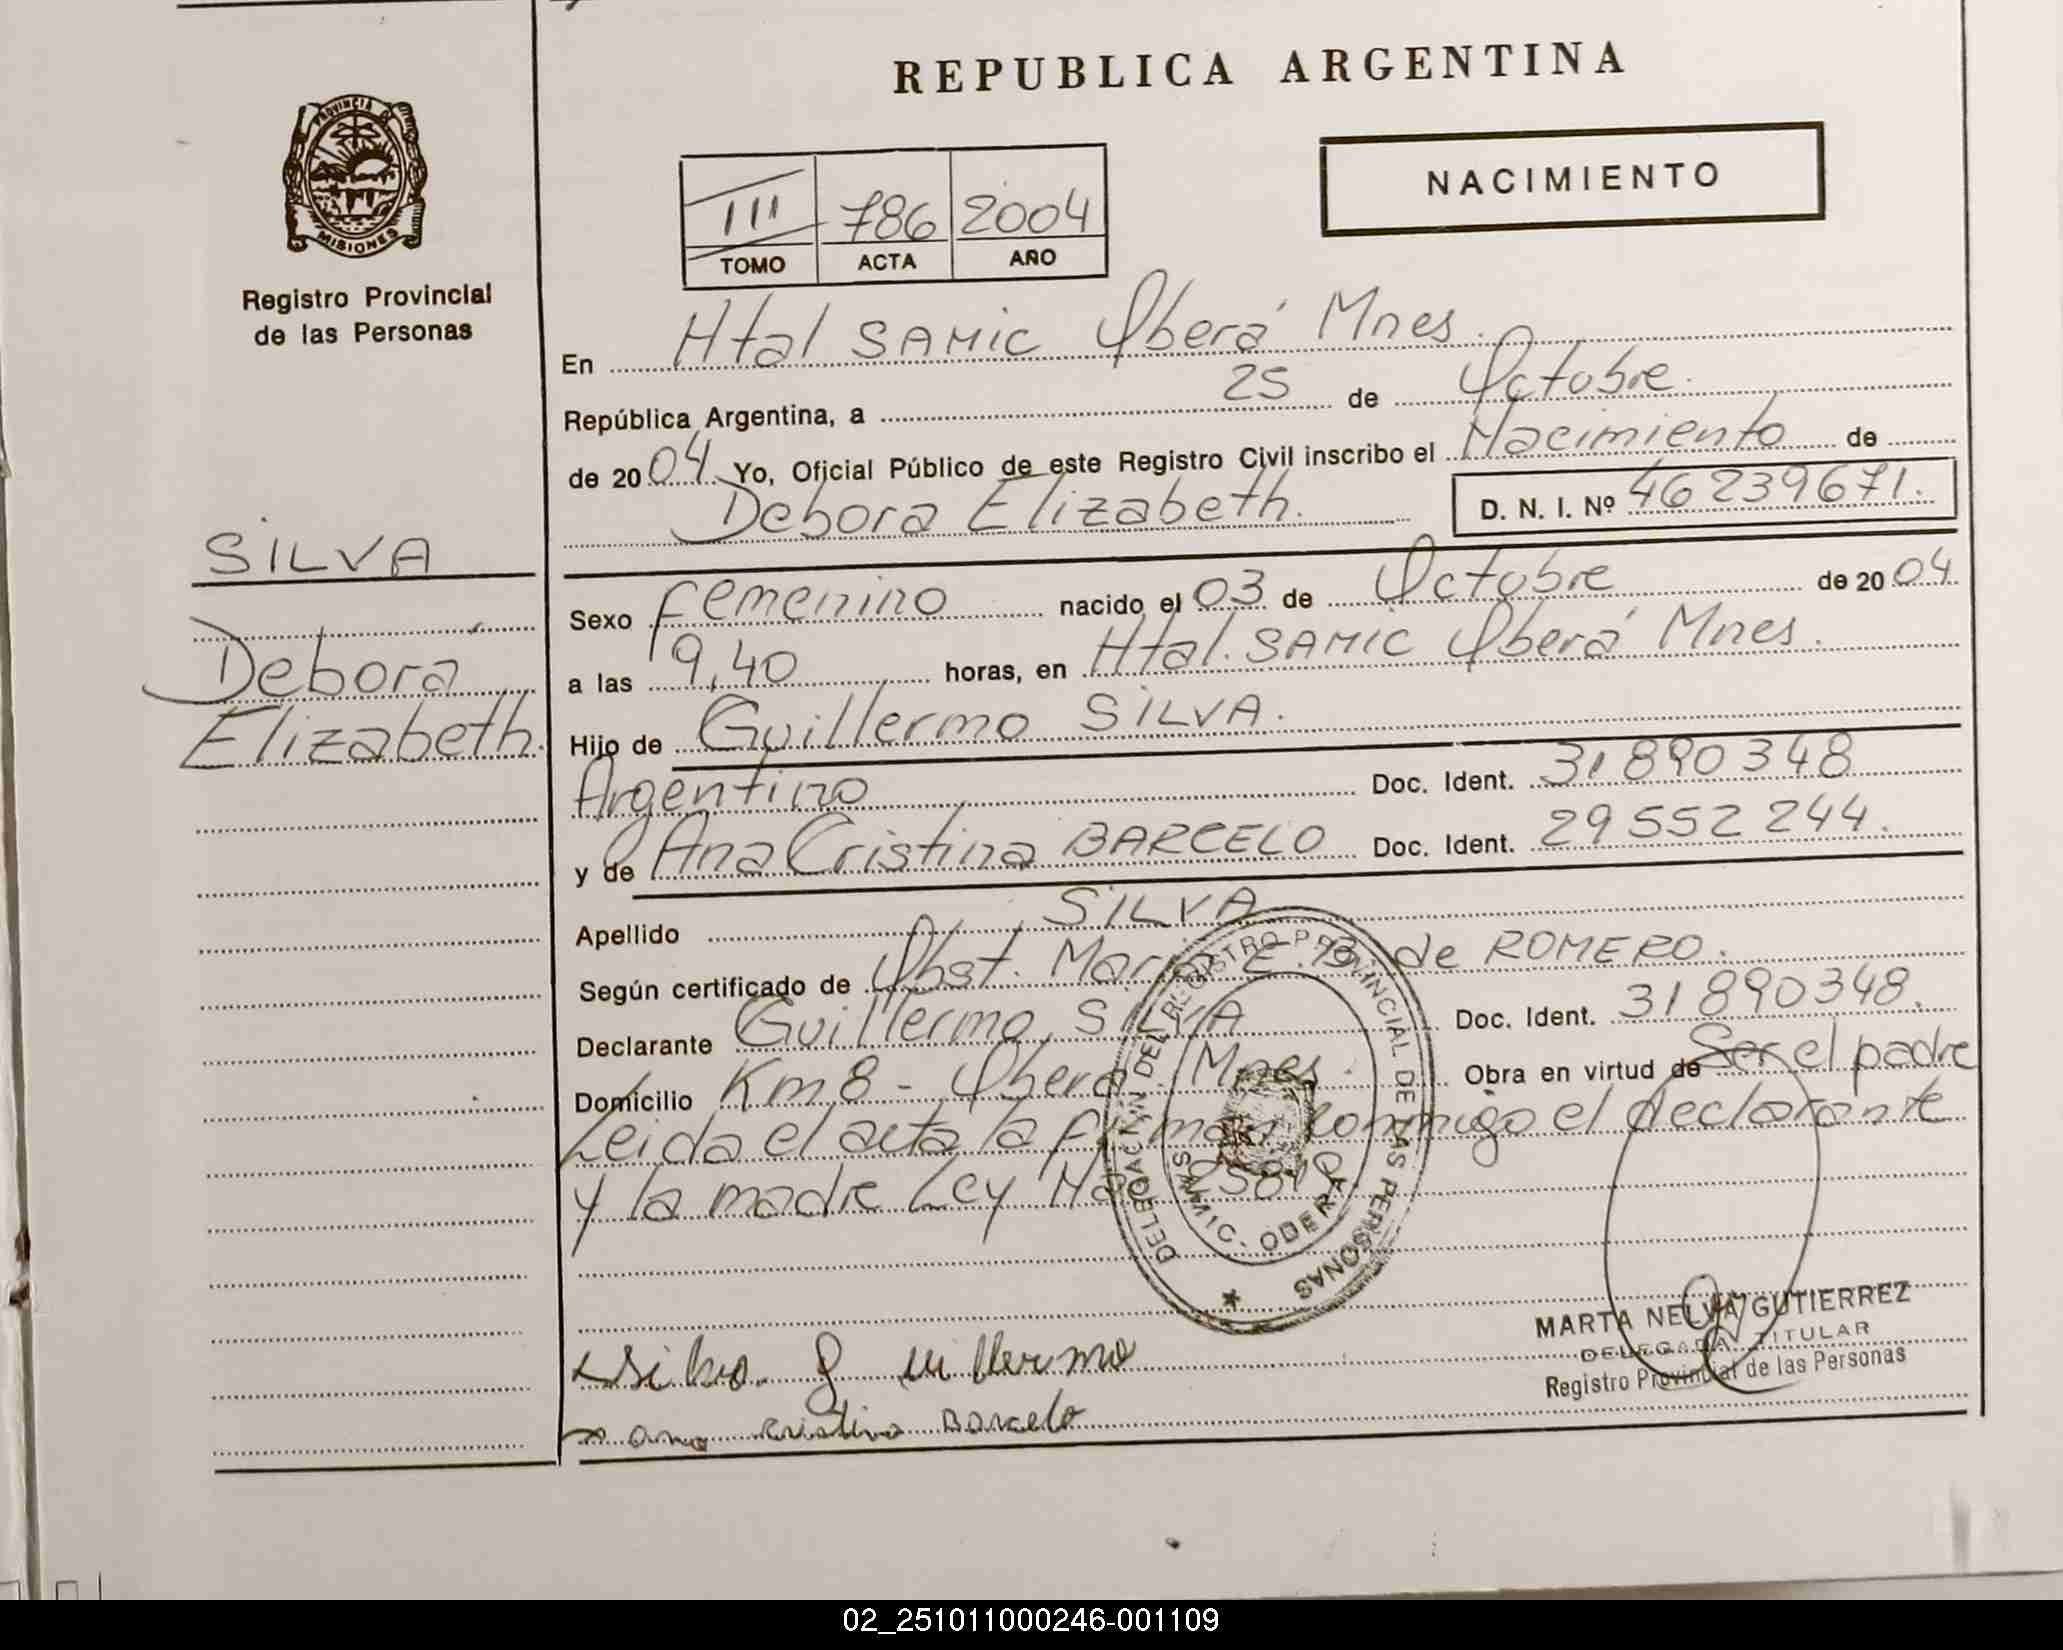 REPUBLICA ARGENTINA
PROVINCIA DE
MISIONES
Registro Provincial
de las Personas
NACIMIENTO
III 786 2004
TOMO ACTA AÑO
En Htal SAMIC Oberá Mnes.
República Argentina, a 25 de Octobre.
de 2004. Yo, Oficial Público de este Registro Civil inscribo el Nacimiento de
Debora Elizabeth. D. N. I. Nº 46239671.
SILVA
Debora
Elizabeth.
Sexo femenino nacido el 03 de Octobre de 2004.
a las 19,40 horas, en Htal. SAMIC Oberá Mnes.
Hijo de Guillermo SILVA.
Argentino Doc. Ident. 31890348
y de Ana Cristina BARCELO Doc. Ident. 29552244.
Apellido SILVA
Según certificado de Obst. Maria E. B. de ROMERO.
Declarante Guillermo SILVA Doc. Ident. 31890348.
Domicilio Km 8 - Oberá Mnes. Obra en virtud de Ser el padre
Leida el acta la firman conmigo el declarante
y la madre Ley Nac 25819
DELEGACION DEL REGISTRO PROVINCIAL DE LAS PERSONAS
SAMIC. OBERA
Silva Guillermo
ana cristina Barcelo
MARTA NELVA GUTIERREZ
DELEGADA TITULAR
Registro Provincial de las Personas
02_251011000246-001109